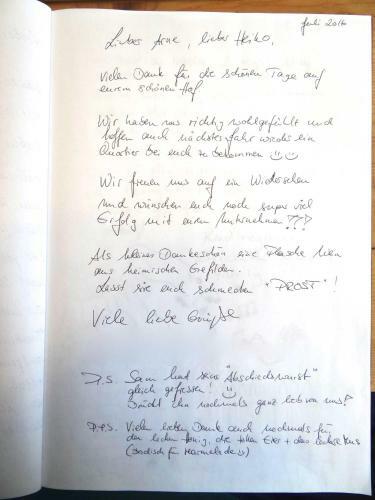 Juli 2016
Liebe Arne, lieber Heiko,
Vielen Dank für die schönen Tage auf
eurem schönen Hof
Wir haben uns richtig wohlgefühlt und
hoffen auch nächstes Jahr wieder ein
Quartier bei euch zu bekommen ☺☺
Wir freuen uns auf ein Wiedersehen
und wünschen euch noch super viel
Erfolg mit eurem Unternehmen !!!
Als kleines Dankeschön eine Flasche Wein
aus heimischen Gefilden.
Lasst sie euch schmecken "PROST"!
Viele liebe Grüße
P.S. Sam hat seine "Abschiedswurst"
gleich gefressen! ☺
Drückt ihn nochmals ganz lieb von uns!
P.P.S. Vielen lieben Dank auch nochmals für
den leckeren Honig, die tollen Eier + das leckere Mus
(Badisch für Marmelade ☺)